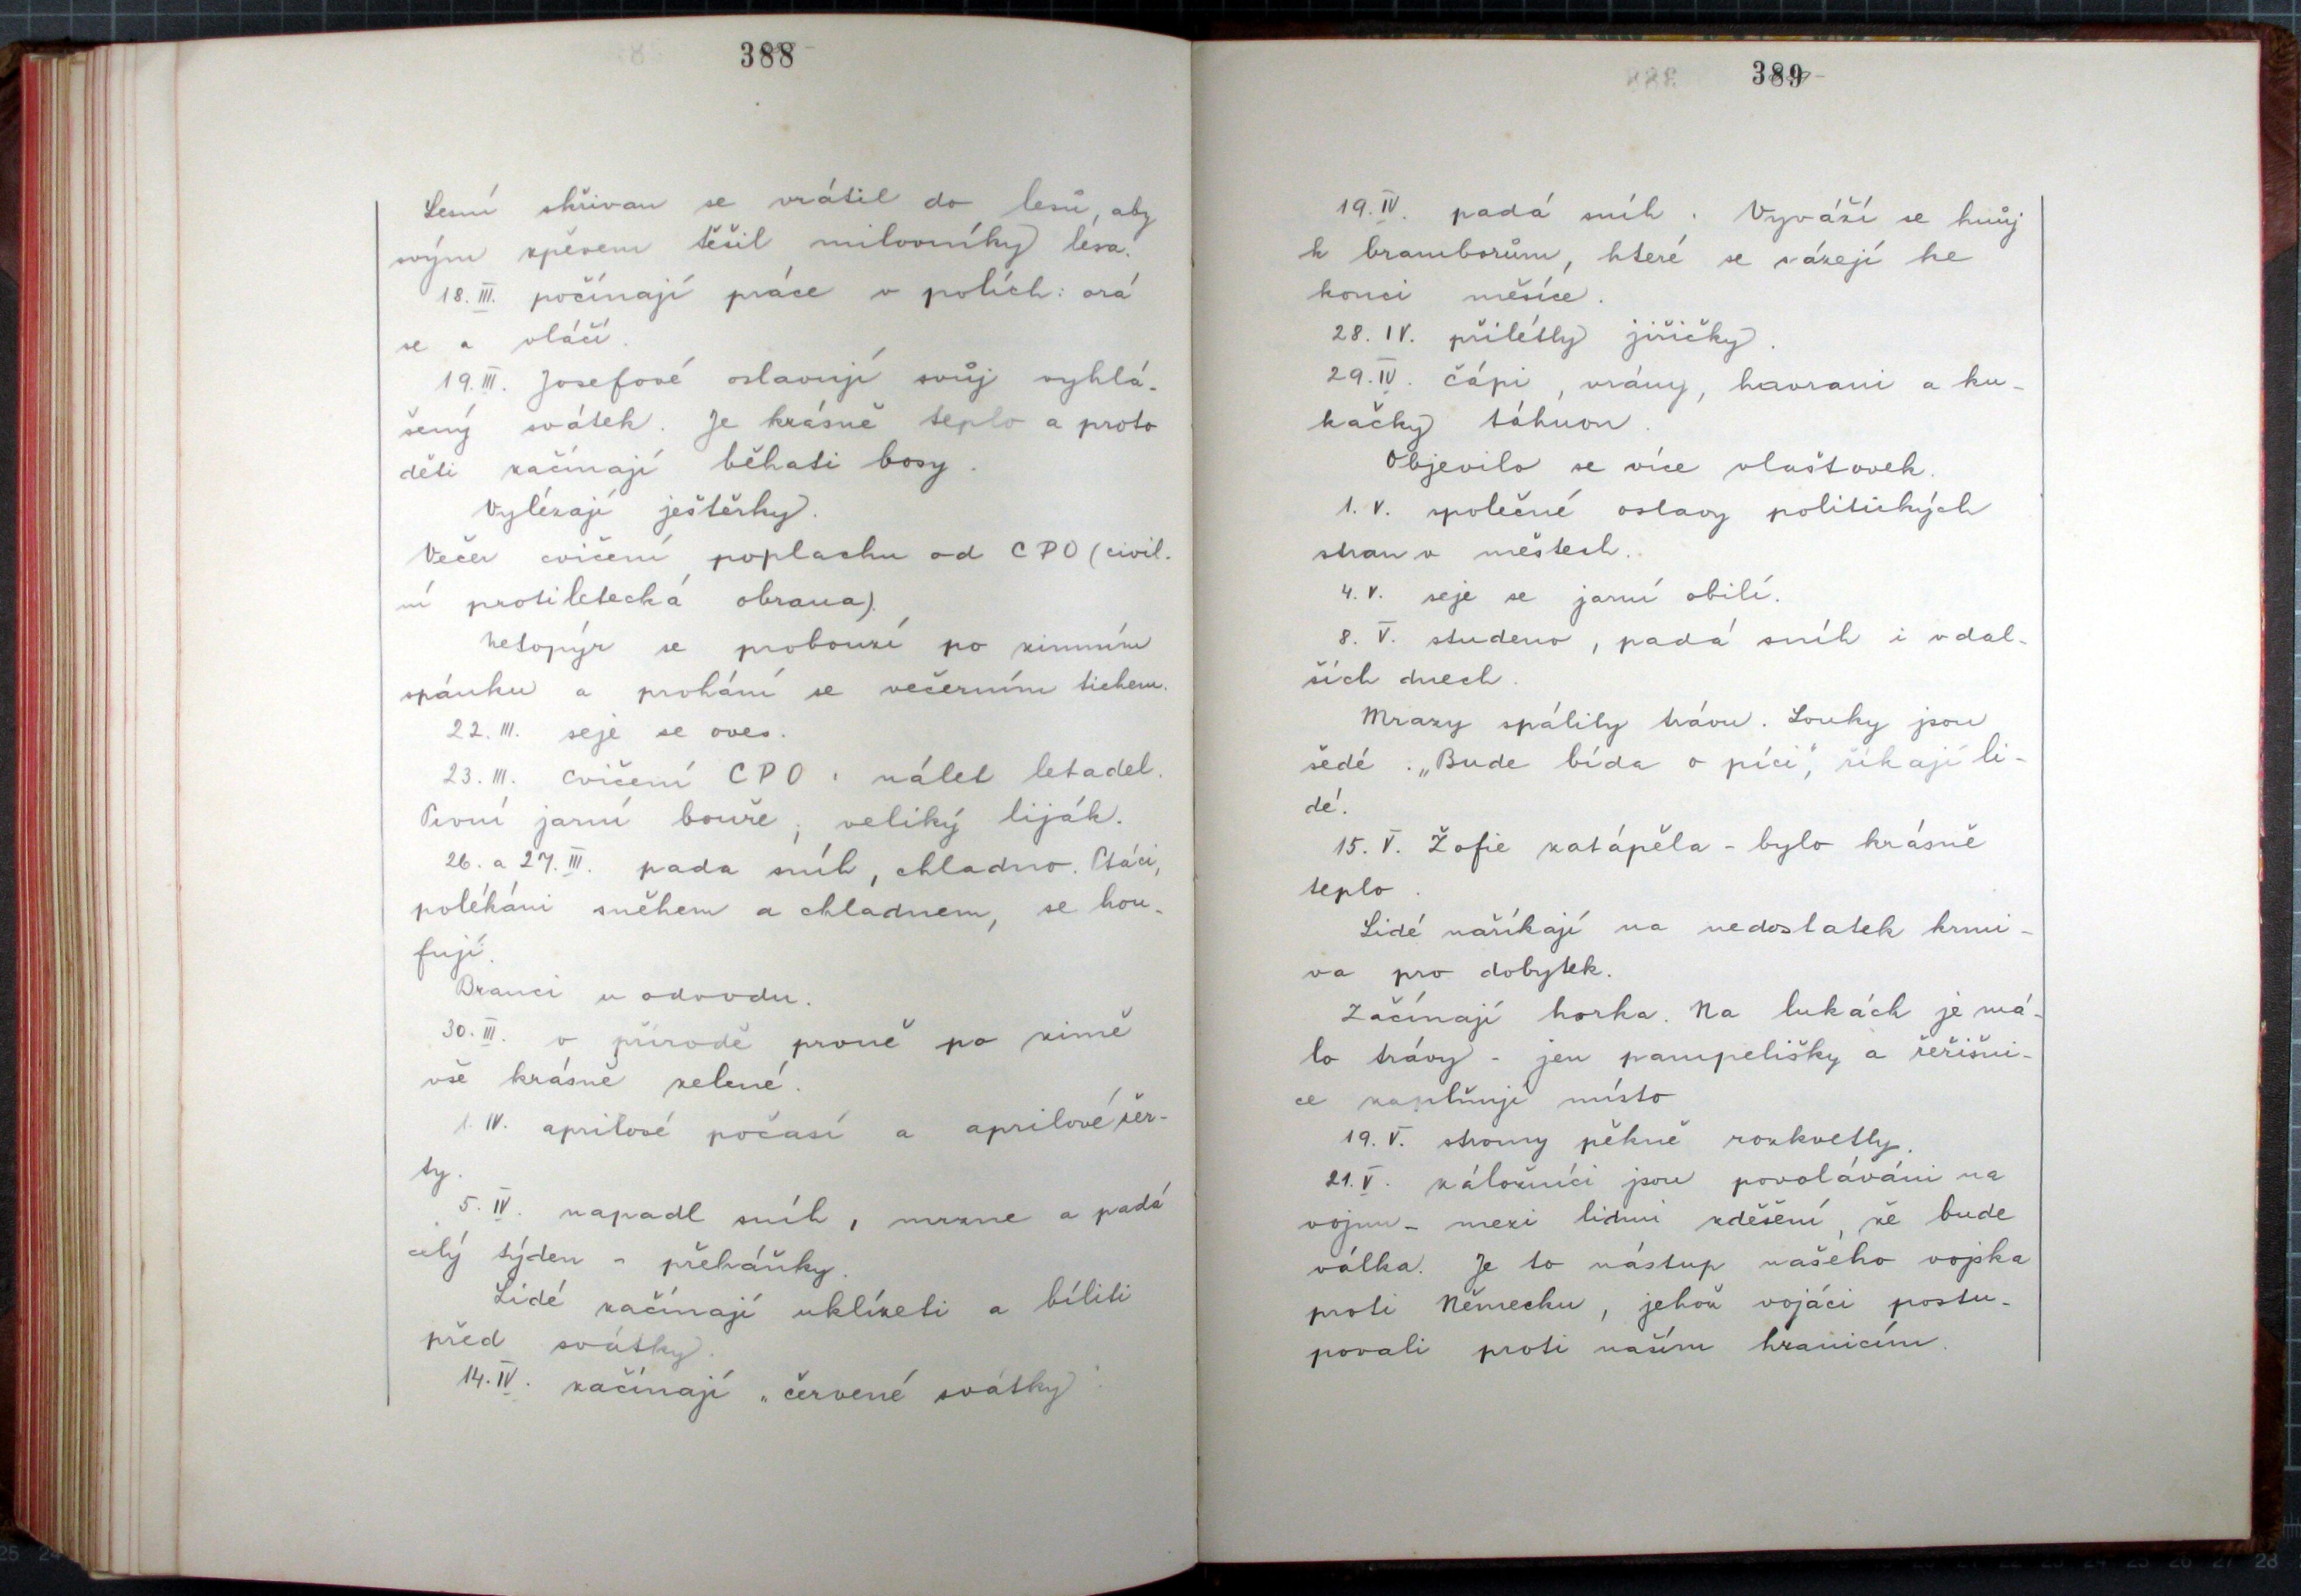 388
Lesní skřivan se vrátil do lesů, aby
svým zpěvem těšil milovníky lesa.
18. III. počínají práce v polích: orá
se a vláčí.
19. III. Josefové oslavují svůj vyhlá-
šený svátek. Je krásně teplo a proto
děti začínají běhati bosy.
Vylézají ještěrky.
Večer cvičení poplachu od CPO (civil-
ní protiletecká obrana).
Netopýr se probouzí po zimním
spánku a prohání se večerním tichem.
22. III. seje se oves.
23. III. cvičení CPO: nálet letadel.
První jarní bouře; veliký liják.
26. a 27. III. pada sníh, chladno. Ptáci,
polékáni sněhem a chladnem, se hou-
fují.
Branci u odvodu.
30. III. v přírodě prvně po zimě
vše krásně zelené.
1. IV. aprilové počasí a aprilové žer-
ty.
5. IV. napadl sníh, mrzne a padá
celý týden - přeháňky.
Lidé začínají uklízeti a bíliti
před svátky.
14. IV. začínají „červené svátky".
389
19. IV. padá sníh. Vyváží se hnůj
k bramborům, které se sázejí ke
konci měsíce.
28. IV. přilétly jiřičky.
29. IV. čápi, vrány, havrani a ku-
kačky táhnou.
Objevilo se více vlaštovek.
1. V. společné oslavy politických
stran v městech.
4. V. seje se jarní obilí.
8. V. studeno, padá sníh i v dal-
ších dnech.
Mrazy spálily trávu. Louky jsou
šedé. „Bude bída o píci", říkají li-
dé.
15. V. Žofie zatápěla - bylo krásně
teplo.
Lidé naříkají na nedostatek krmi-
va pro dobytek.
Začínají horka. Na lukách je má-
lo trávy - jen pampelišky a řeřišni-
ce zaplňují místo
19. V. stromy pěkně rozkvetly.
21. V. záložníci jsou povoláváni na
vojnu - mezi lidmi zděšení, že bude
válka. Je to nástup našeho vojska
proti Německu, jehož vojáci postu-
povali proti našim hranicím.